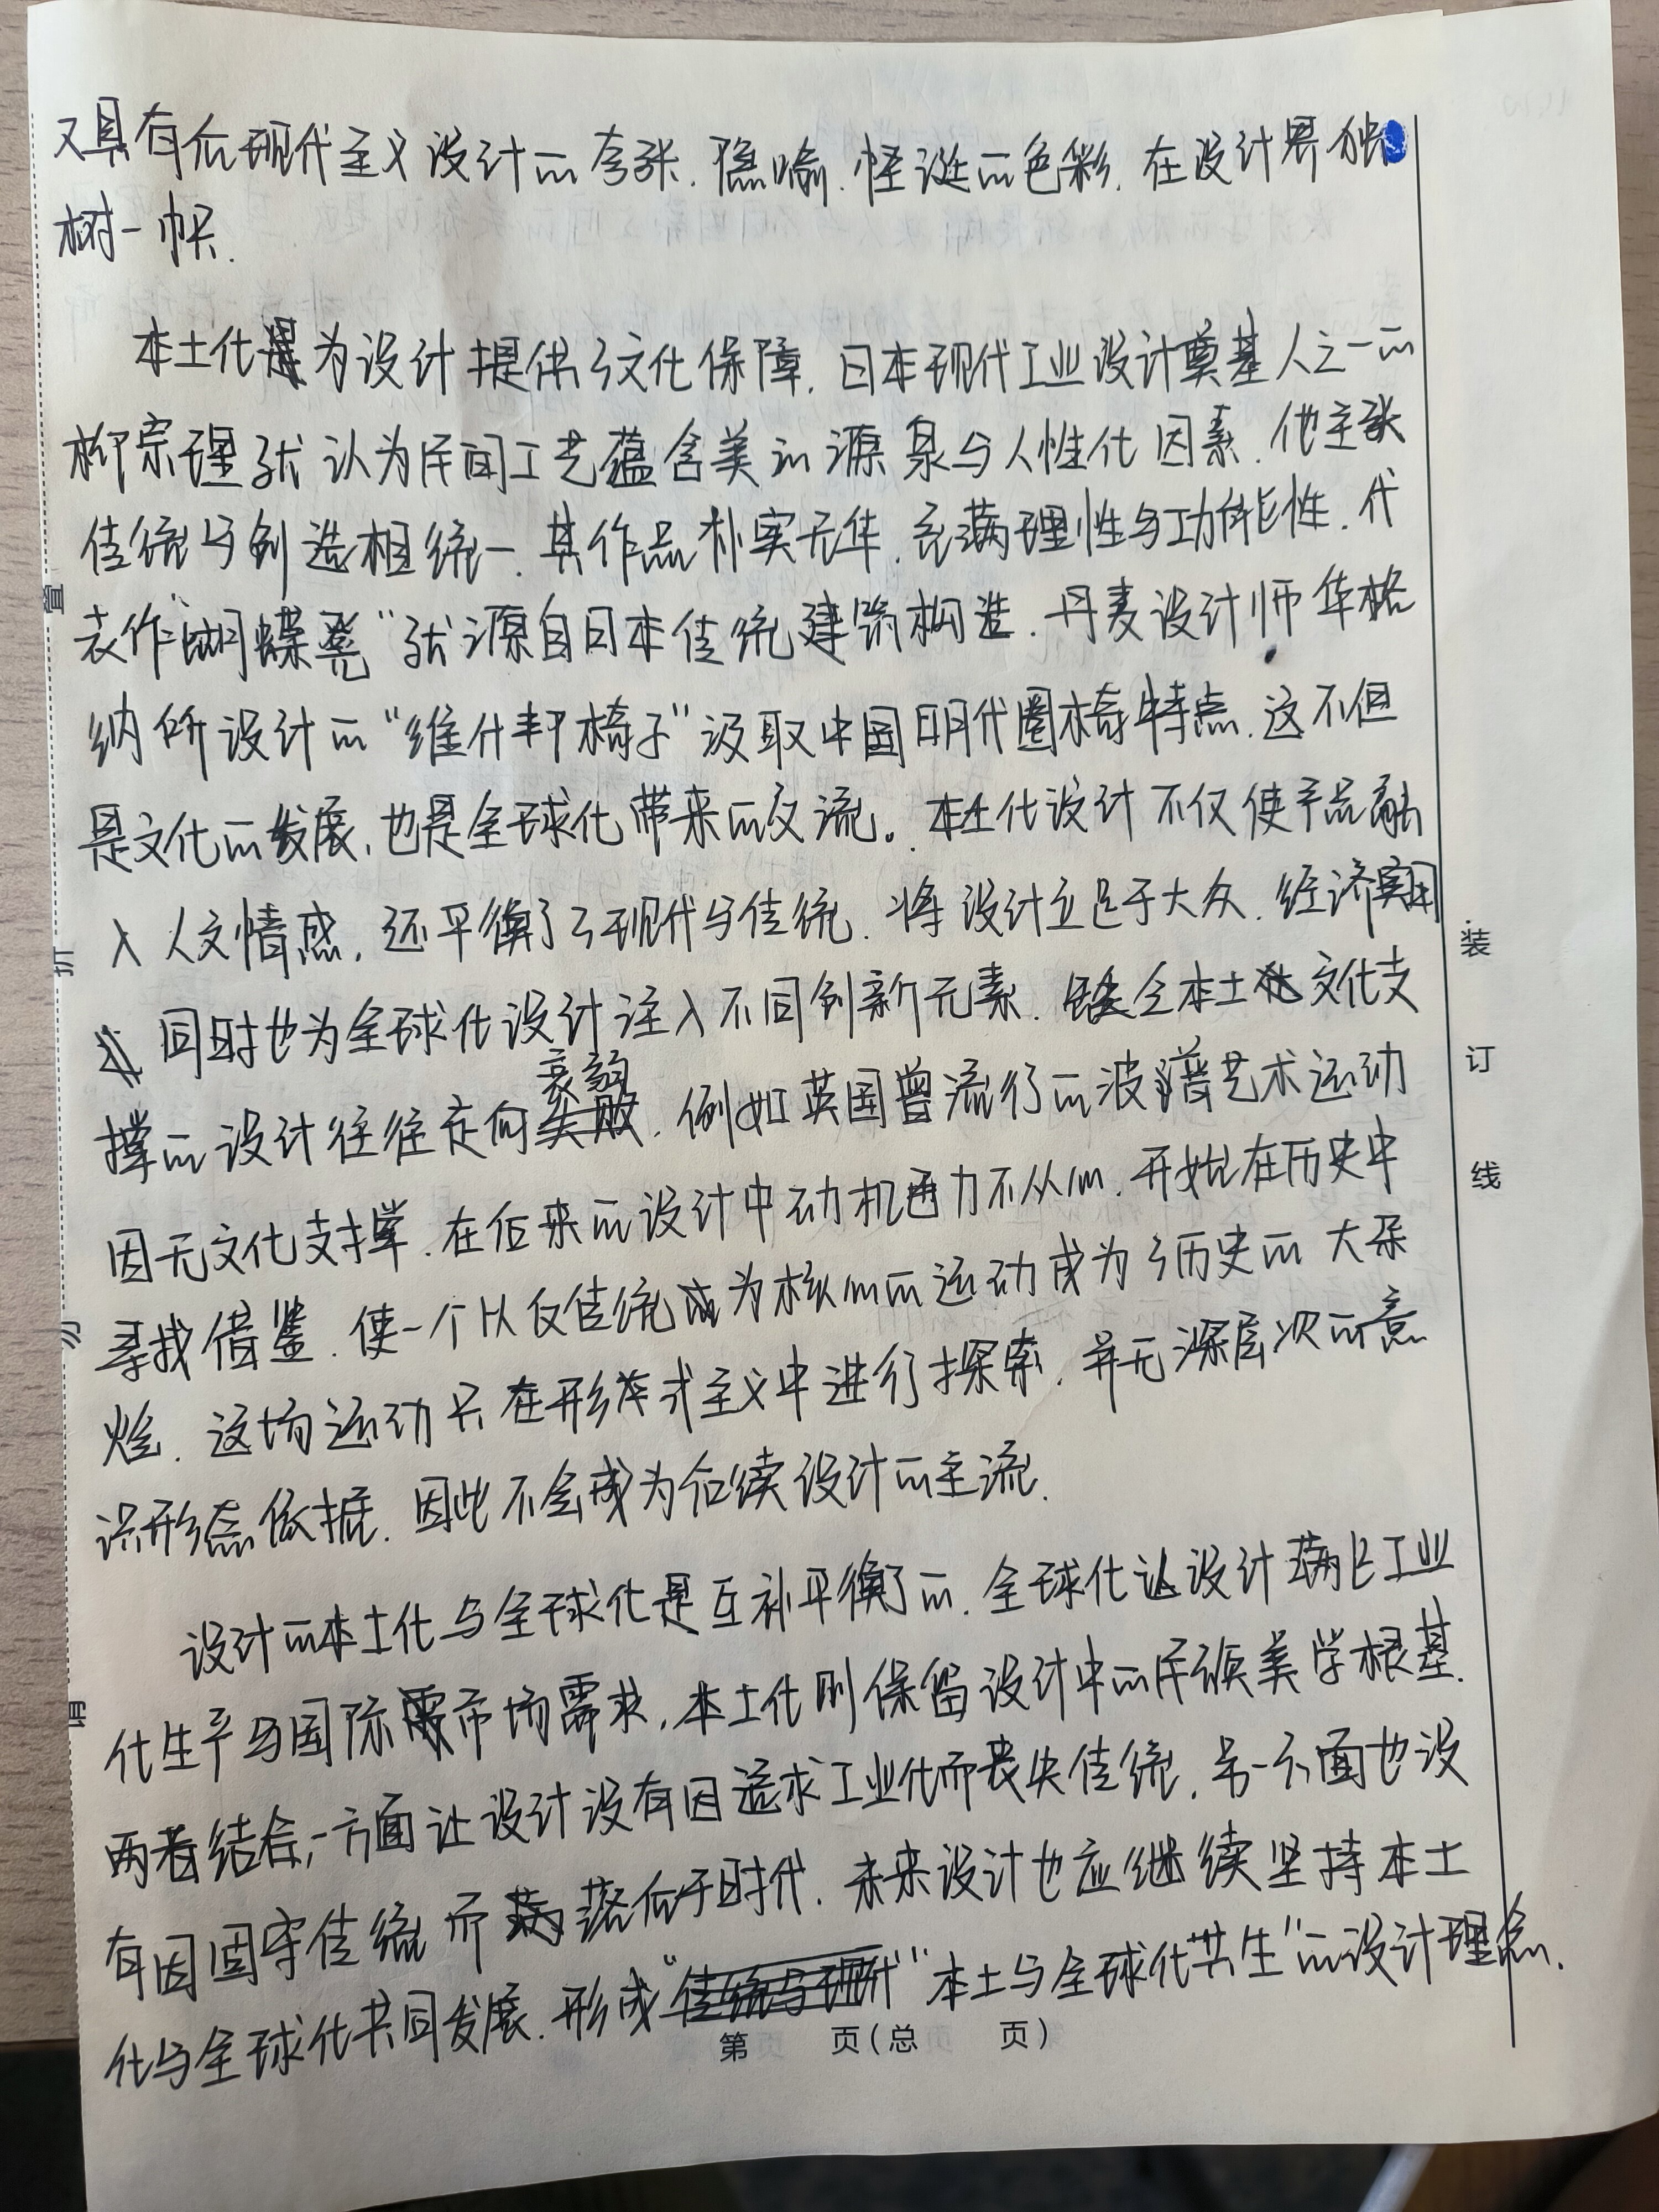 又具有后现代主义设计的夸张、隐喻、怪诞的色彩,在设计界独
树一帜.
本土化为设计提供了文化保障,日本现代工业设计奠基人之一的
柳宗理就认为民间工艺蕴含美的源泉与人性化因素,他主张
传统与创造相统一,其作品朴实无华,充满理性与功能性,代
表作"蝴蝶凳"就源自日本传统建筑构造,丹麦设计师华格
纳所设计的"维什邦椅子"汲取中国明代圈椅特点,这不但
是文化的发展,也是全球化带来的交流。本土化设计不仅使产品融
入人文情感,还平衡了现代与传统,将设计立足于大众,经济实用
同时也为全球化设计注入不同创新元素,缺乏本土文化支
撑的设计往往走向衰弱,例如英国曾流行的波普艺术运动
因无文化支撑,在后来的设计中动机力不从心,开始在历史中
寻找借鉴,使一个以反传统为核心的运动成为了历史的大杂
烩,这场运动只在形式主义中进行探索,并无深层次的意
识形态依据,因此不会成为后续设计的主流.
设计的本土化与全球化是互补平衡的,全球化让设计满足工业
化生产与国际市场需求,本土化则保留设计中的民族美学根基.
两者结合,一方面让设计没有因追求工业化而丧失传统,另一方面也没
有因固守传统而落伍于时代,未来设计也应继续坚持本土
化与全球化共同发展,形成"本土与全球化共生"的设计理念.
置
折
勿
请
装
订
线
第 页(总 页)